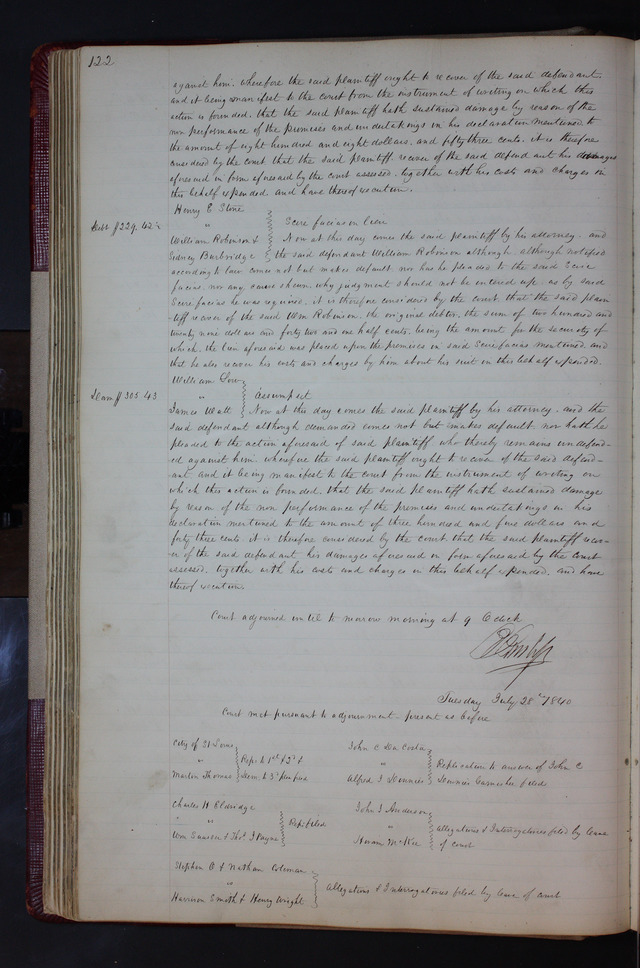 122
against him. wherefore the said plaintiff ought to recover of the said defendant.
and it being manifest to the court from the instrument of writing on which this
action is founded. that the said plaintiff hath sustained damage by reason of the
non performance of the promises and undertakings in his declaration mentioned to
the amount of eight hundred and eight dollars. and fifty three cents. it is therefore
considered by the court that the said plaintiff recover of the said defendant his damages
aforesaid in form aforesaid by the court assessed. together with his costs and charges in
this behalf expended. and have thereof execution.
Henry E Stone
" Scire facias on lien
Debt $229.42½
William Robinson & Now at this day comes the said plaintiff by his attorney. and
Sidney Burbridge the said defendant William Robinson although. although notified
according to law comes not but makes default. nor has he pleaded to the said Scire
facias. nor any cause shewn. why judgment should not be entered up. as by said
Scire facias he was required. it is therefore considered by the court that the said plain
-tiff recover of the said Wm Robinson. the original debtor. the sum of two hundred and
twenty nine dollars and forty two and one half cents. being the amount for the security of
which the lien aforesaid was placed upon the premises in said Scire facias mentioned. and
that he also recover his costs and charges by him about his suit in this behalf expended.
William
Dam $305.43
" Assumpsit
James Watt Now at this day comes the said plaintiff by his attorney. and the
said defendant although demanded comes not but makes default. nor hath he
pleaded to the action aforesaid of said plaintiff who thereby remains undefend-
ed against him. wherefore the said plaintiff ought to recover of the said defend-
ant. and it being manifest to the court from the instrument of writing on
which this action is founded. that the said plaintiff hath sustained damage
by reason of the non performance of the promises and undertakings in his
declaration mentioned to the amount of three hundred and five dollars and
forty three cents. it is therefore considered by the court that the said plaintiff recov-
er of the said defendant his damages aforesaid in form aforesaid by the Court
assessed. together with his costs and charges in this behalf expended. and have
thereof execution.
Court adjourned until to morrow morning at 9 Oclock
Tuesday July 28th 1840
Court met pursuant to adjournment - present as before
City of St Louis
" Rep. to 1st & 2d &
Marton Thomas Dem. to 3d plea filed
John C Da Costa
" Replication to answer of John C
Alfred J Dennis Dennis Garnishee filed
Charles H Eldridge
" " Rep. filed
Wm Sawson & Thos. J Payne
John J Anderson
allegations & Interrogatories filed by leave
Hiram McKee of court
Stephen O & Nathan Coleman
" Allegations & Interrogatories filed by leave of court
Harrison Smith & Henry Wright